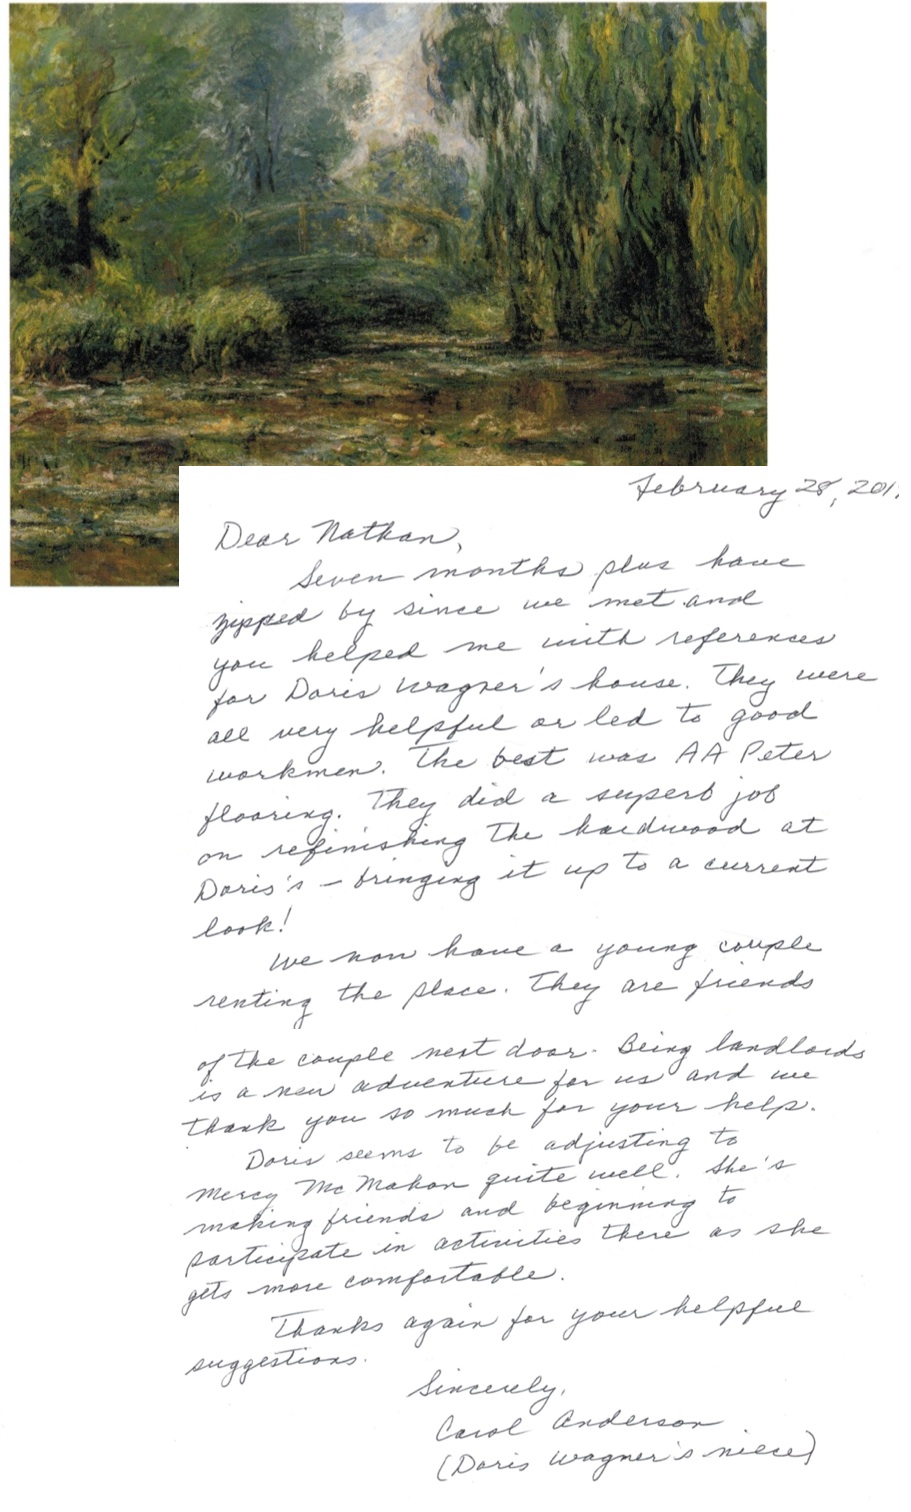 February 28, 201
Dear Nathan,
Seven months plus have
zipped by since we met and
you helped me with references
for Doris Wagner's house. They were
all very helpful or led to good
workmen. The best was AA Peter
flooring. They did a superb job
on refinishing the hardwood at
Doris's – bringing it up to a current
look!
We now have a young couple
renting the place. They are friends
of the couple next door. Being landlords
is a new adventure for us and we
thank you so much for your help.
Doris seems to be adjusting to
Mercy McMahon quite well. She's
making friends and beginning to
participate in activities there as she
gets more comfortable.
Thanks again for your helpful
suggestions.
Sincerely,
Carol Anderson
(Doris Wagner's niece)